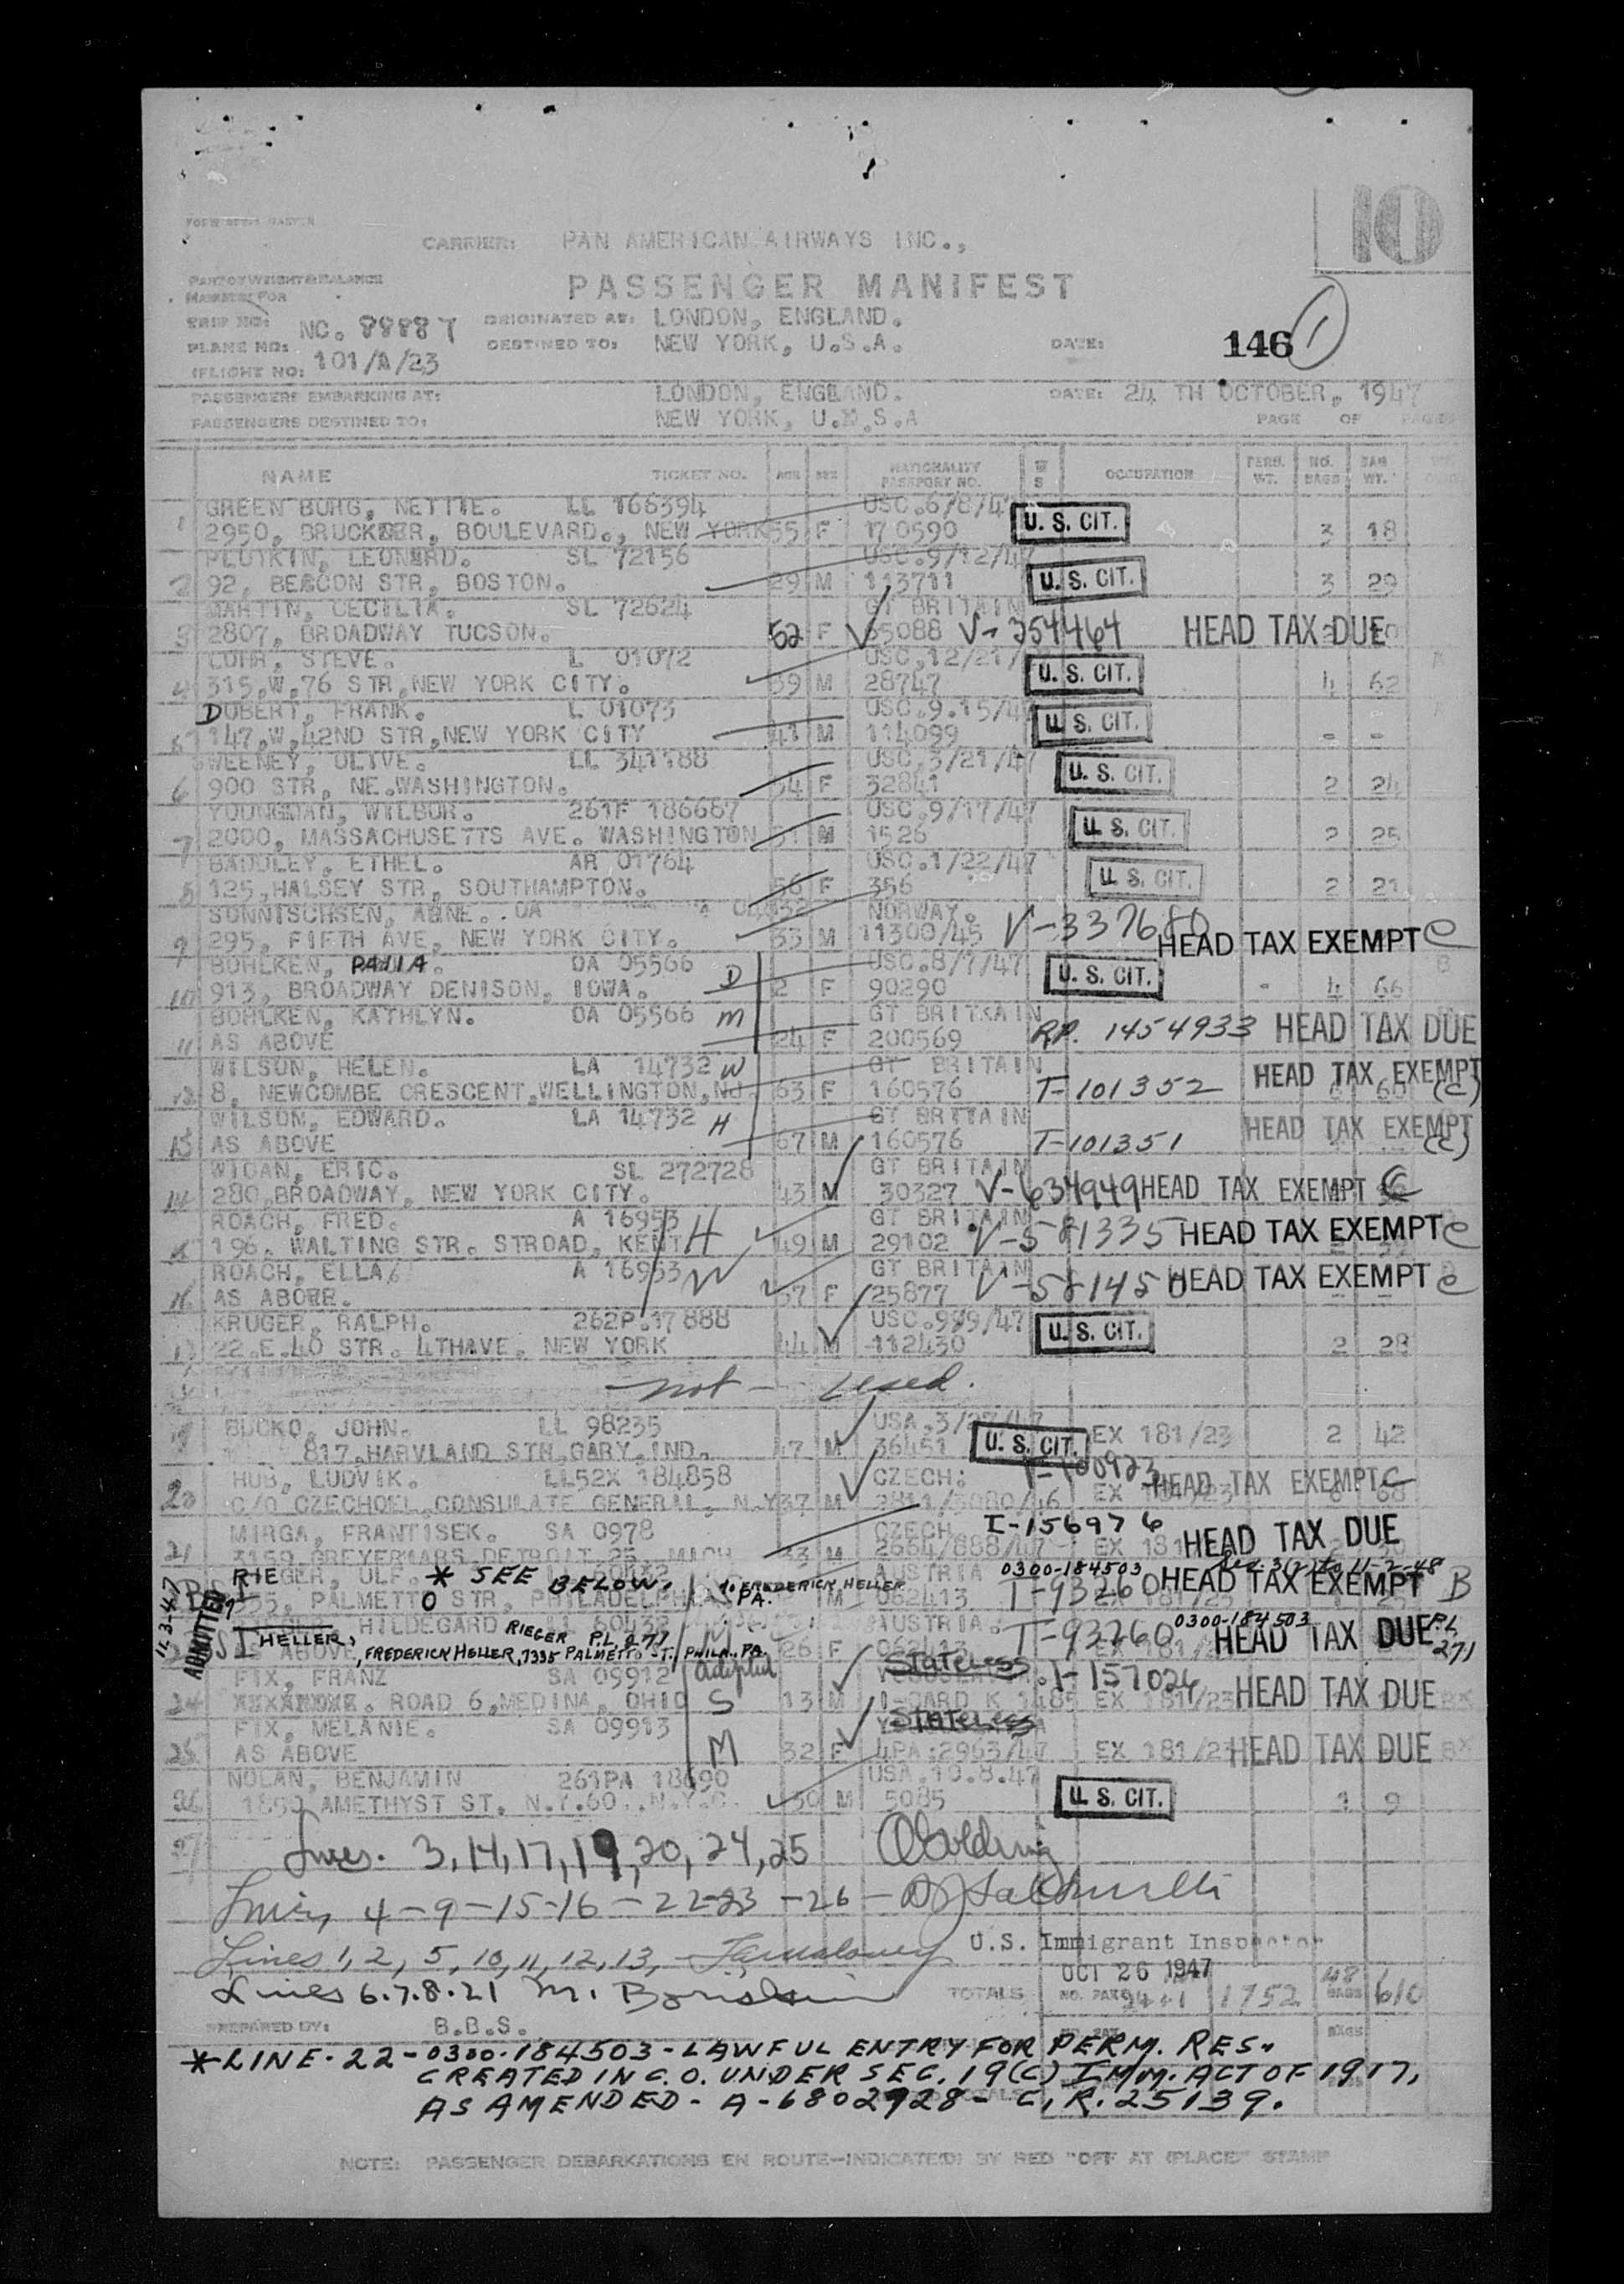 10
CARRIER: PAN AMERICAN AIRWAYS INC.,
PART OF WEIGHT & BALANCE
MANIFEST FOR
PASSENGER MANIFEST
TRIP NO: NC. 88887 ORIGINATED AT: LONDON, ENGLAND.
PLANE NO: DESTINED TO: NEW YORK, U.S.A. DATE: 146 1
FLIGHT NO: 101/A/23
PASSENGERS EMBARKING AT: LONDON, ENGLAND. DATE: 24 TH OCTOBER, 1947
PASSENGERS DESTINED TO: NEW YORK, U.S.A PAGE OF PAGES
NAME TICKET NO. AGE SEX NATIONALITY PASSPORT NO. OCCUPATION PERS. WT. NO. BAGS BAG WT.
GREEN BURG, NETTIE. LL 166394 USC.6/8/4
1 2950, BRUCKNER, BOULEVARD., NEW YORK 55 F 170590 U. S. CIT. 3 18
PLUTKIN, LEONARD. SL 72156 USC.9/12/47
2 92, BEACON STR, BOSTON. 29 M 113711 U. S. CIT. 3 29
MARTIN, CECILIA. SL 72624 GT BRITAIN
3 2807, BROADWAY TUCSON. 52 F 65088 V-254464 HEAD TAX DUE
LOHR, STEVE. L 01072 USC.12/21/
4 315.W.76 STR,NEW YORK CITY. 39 M 28747 U. S. CIT. 4 62
DUBERT, FRANK. L 01073 USC.9.15/4
5 147,W,42ND STR,NEW YORK CITY 41 M 114099 U. S. CIT. - -
SWEENEY, OLIVE. LL 341188 USC.3/21/47
6 900 STR, NE.WASHINGTON. 54 F 32841 U. S. CIT. 2 24
YOUNGMAN, WILBUR. 261F 186687 USC.9/17/47
7 2000, MASSACHUSETTS AVE. WASHINGTON 51 M 1526 U. S. CIT. 2 25
BADDLEY, ETHEL. AR 01764 USC.1/22/47
8 125,HALSEY STR, SOUTHAMPTON. 56 F 356 U. S. CIT. 2 21
SONNISCHSEN, ARNE. OA NORWAY.
9 295, FIFTH AVE, NEW YORK CITY. 33 M 11300/45 V-337680 HEAD TAX EXEMPT C
BOHLKEN, PAULA. OA 05566 D USC.8/7/47
10 913, BROADWAY DENISON, IOWA. 2 F 90290 U. S. CIT. - 4 66
BOHLKEN, KATHLYN. OA 05566 M GT BRITAIN
11 AS ABOVE 24 F 200569 RP. 1454933 HEAD TAX DUE
WILSON, HELEN. LA 14732 W GT BRITAIN
12 8, NEWCOMBE CRESCENT,WELLINGTON,NJ. 63 F 160576 T-101352 HEAD TAX EXEMPT (C)
WILSON, EDWARD. LA 14732 H GT BRITAIN
13 AS ABOVE 67 M 160576 T-101351 HEAD TAX EXEMPT (C)
WIGAN, ERIC. SL 272728 GT BRITAIN
14 280,BROADWAY, NEW YORK CITY. 43 M 30327 V-634949 HEAD TAX EXEMPT C
ROACH, FRED. A 16953 H GT BRITAIN
15 196. WALTING STR. STROAD, KENT 49 M 29102 V-581335 HEAD TAX EXEMPT C
ROACH, ELLA. A 16953 W GT BRITAIN
16 AS ABOVE. 57 F 25877 V-581450 HEAD TAX EXEMPT C
KRUGER, RALPH. 262P.17888 USC.9/9/47
17 22.E.40 STR. 4THAVE. NEW YORK 44 M 112430 U. S. CIT. 2 28
not - used.
BUCKO, JOHN. LL 98235 USA.3/27/47
19 817.HARVLAND STR,GARY,IND. 47 M 36451 U. S. CIT. EX 181/23 2 42
HUB, LUDVIK. LL52X 184858 CZECH: T-100923
20 C/O CZECHOSL,CONSULATE GENERAL, N.Y 37 M HEAD TAX EXEMPT C
MIRGA, FRANTISEK. SA 0978 CZECH I-156976
21 DETROIT 25, MICH 33 M 2664/888/47 EX 181 HEAD TAX DUE
RIEGER, ULF. * SEE BELOW. AUSTRIA 0300-184503
PALMETTO STR, PHILADELPHIA to FREDERICK HELLER PA. M 062413 T-93260 HEAD TAX EXEMPT B
HILDEGARD AUSTRIA. 0300-184503
HELLER, RIEGER P.L. 271 26 F 062413 T-93260 HEAD TAX DUE P.L. 271
11-3-47 ADMITTED AS ABOVE, FREDERICK HELLER, 7335 PALMETTO ST., PHILA., PA.
FIX, FRANZ SA 09912 Adopted Stateless I-157024
24 ROAD 6,MEDINA, OHIO S 13 M I-CARD K 1485 EX 181/23 HEAD TAX DUE
FIX, MELANIE. SA 09913 Stateless
25 AS ABOVE M 32 F 4PA:2963/47 EX 181/23 HEAD TAX DUE
NOLAN, BENJAMIN 261PA 18690 USA.10.8.47
26 AMETHYST ST. N.Y.60..N.Y.C. 30 M 5085 U. S. CIT. 1 9
27 Lines. 3,14,17,19,20,24,25
Lines 4-9-15-16-22-23-26-
Lines 1, 2, 5, 10, 11, 12, 13,
U.S. Immigrant Inspector
Lines 6.7.8.21
OCT 26 1947
TOTALS NO. PAX 1752 48 BAGS 610
PREPARED BY: B.B.S.
*LINE-22-0300-184503-LAWFUL ENTRY FOR PERM. RES.
CREATED IN C.O. UNDER SEC. 19(C) IMM. ACT OF 1917,
AS AMENDED- A-6802928- C.R. 25139.
NOTE: PASSENGER DEBARKATIONS EN ROUTE—INDICATE(D) BY RED "OFF AT (PLACE)" STAMP